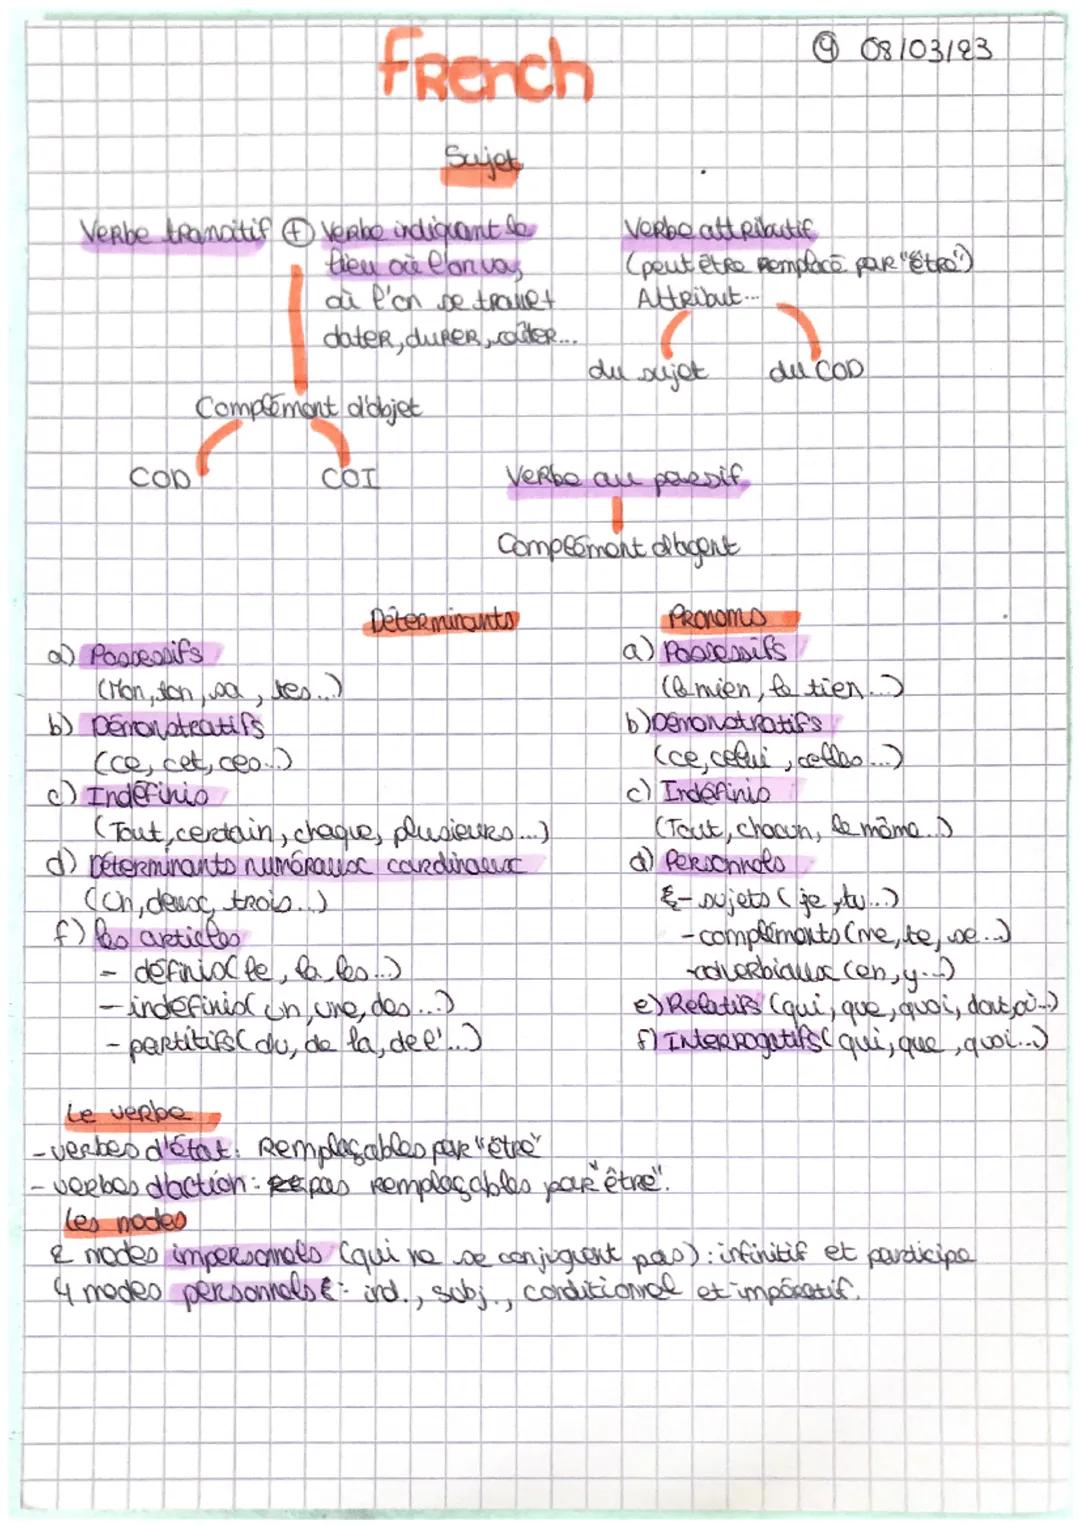 French
④ 08/03/23
Sujet
Verbe transitif ⊕ Verbe indiquant le
lieu où l'on va,
où l'on se trouve +
dater, durer, coûter...
Complément d'objet
COD COI
Verbe attributif
(peut être remplacé par "être")
Attribut...
du sujet du COD
Verbe au passif
Complément d'agent
Déterminants
a) Possessifs
(Mon, ton, sa, tes...)
b) Démonstratifs
(ce, cet, ces...)
c) Indéfinis
(Tout, certain, chaque, plusieurs...)
d) Déterminants numéraux cardinaux
(Un, deux, trois...)
f) les articles
- définis (le, la, les...)
- indéfinis (un, une, des...)
- partitifs (du, de la, de l'...)
Pronoms
a) Possessifs
(le mien, le tien...)
b) Démonstratifs
(ce, celui, celles...)
c) Indéfinis
(Tout, chacun, le même...)
d) Personnels
- sujets (je, tu...)
- compléments (me, te, se...)
- adverbiaux (en, y...)
e) Relatifs (qui, que, quoi, dont, où...)
f) Interrogatifs (qui, que, quoi...)
Le verbe
- verbes d'état: Remplaçables par "être"
- verbes d'action: pas remplaçables par "être".
Les modes
2 modes impersonnels (qui ne se conjuguent pas): infinitif et participe
4 modes personnels: ind., subj., conditionnel et impératif.